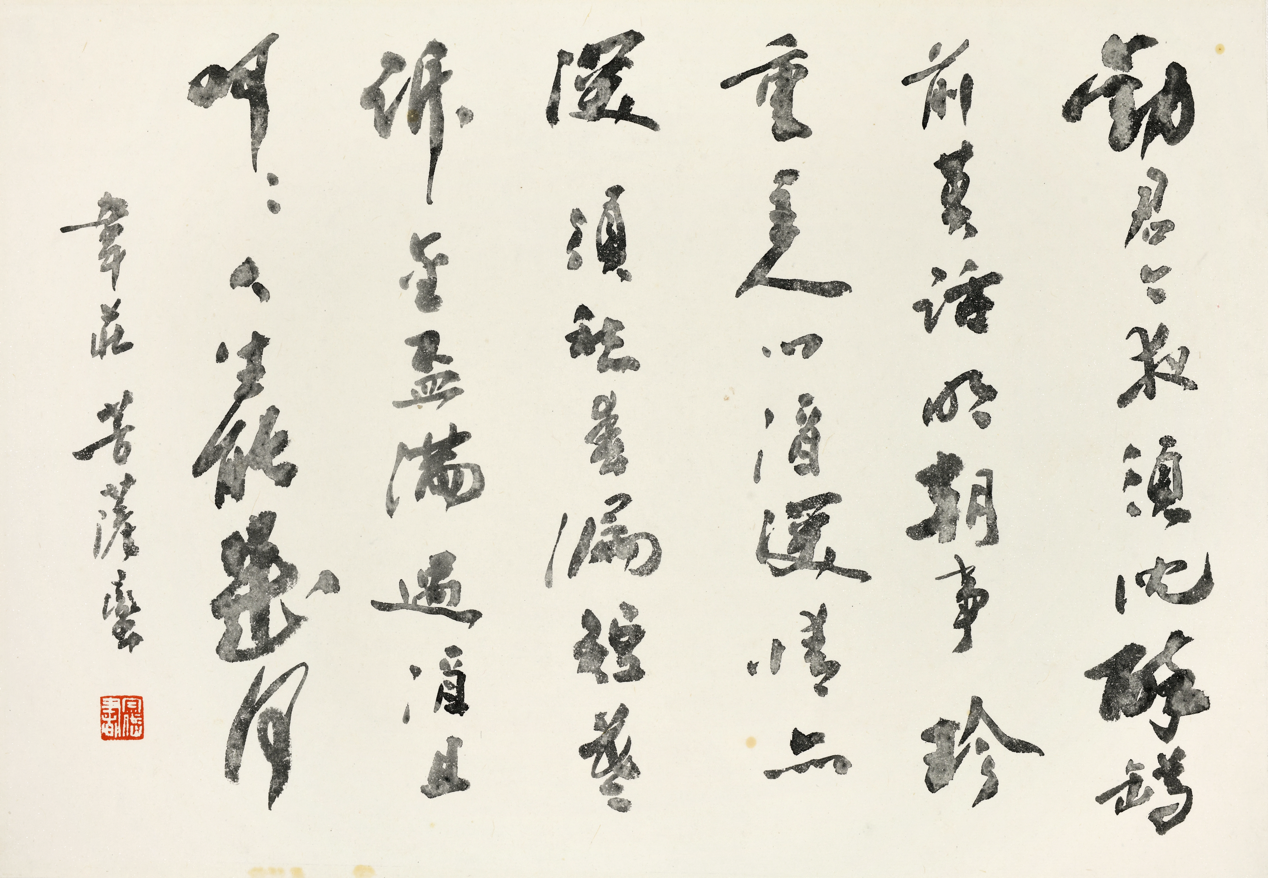 勸君今夜須沈醉罇
前莫話明朝事珍
重主人心酒深情亦
深須愁春漏短莫
訴金盃滿遇酒且
呵〻人生能幾何
韋莊菩薩蠻